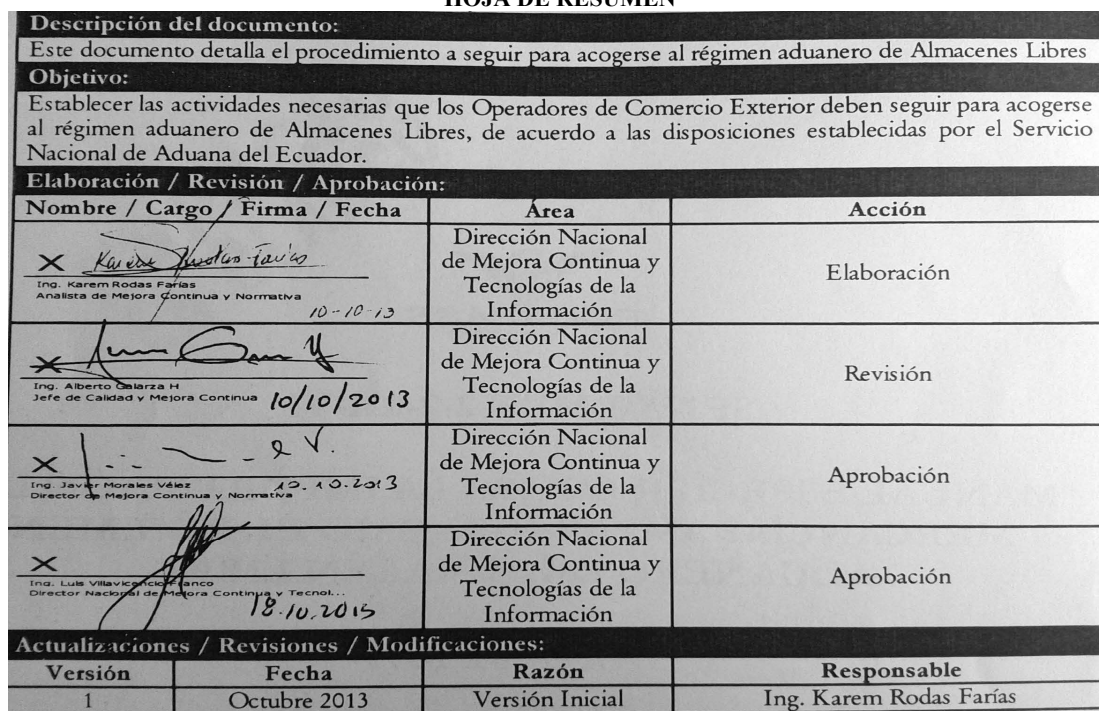 HOJA DE RESUMEN
Descripción del documento:
Este documento detalla el procedimiento a seguir para acogerse al régimen aduanero de Almacenes Libres
Objetivo:
Establecer las actividades necesarias que los Operadores de Comercio Exterior deben seguir para acogerse
al régimen aduanero de Almacenes Libres, de acuerdo a las disposiciones establecidas por el Servicio
Nacional de Aduana del Ecuador.
Elaboración / Revisión / Aprobación:
Nombre / Cargo / Firma / Fecha Área Acción
X
Ing. Karem Rodas Farías
Analista de Mejora Continua y Normativa
10-10-13
Dirección Nacional
de Mejora Continua y
Tecnologías de la
Información
Elaboración
X
Ing. Alberto Galarza H
Jefe de Calidad y Mejora Continua 10/10/2013
Dirección Nacional
de Mejora Continua y
Tecnologías de la
Información
Revisión
X
Ing. Javier Morales Vélez
Director de Mejora Continua y Normativa
10.10.2013
Dirección Nacional
de Mejora Continua y
Tecnologías de la
Información
Aprobación
X
Ing. Luis Villavicencio Franco
Director Nacional de Mejora Continua y Tecnol...
Dirección Nacional
de Mejora Continua y
Tecnologías de la
Información
Aprobación
Actualizaciones / Revisiones / Modificaciones:
Versión Fecha Razón Responsable
1 Octubre 2013 Versión Inicial Ing. Karem Rodas Farías